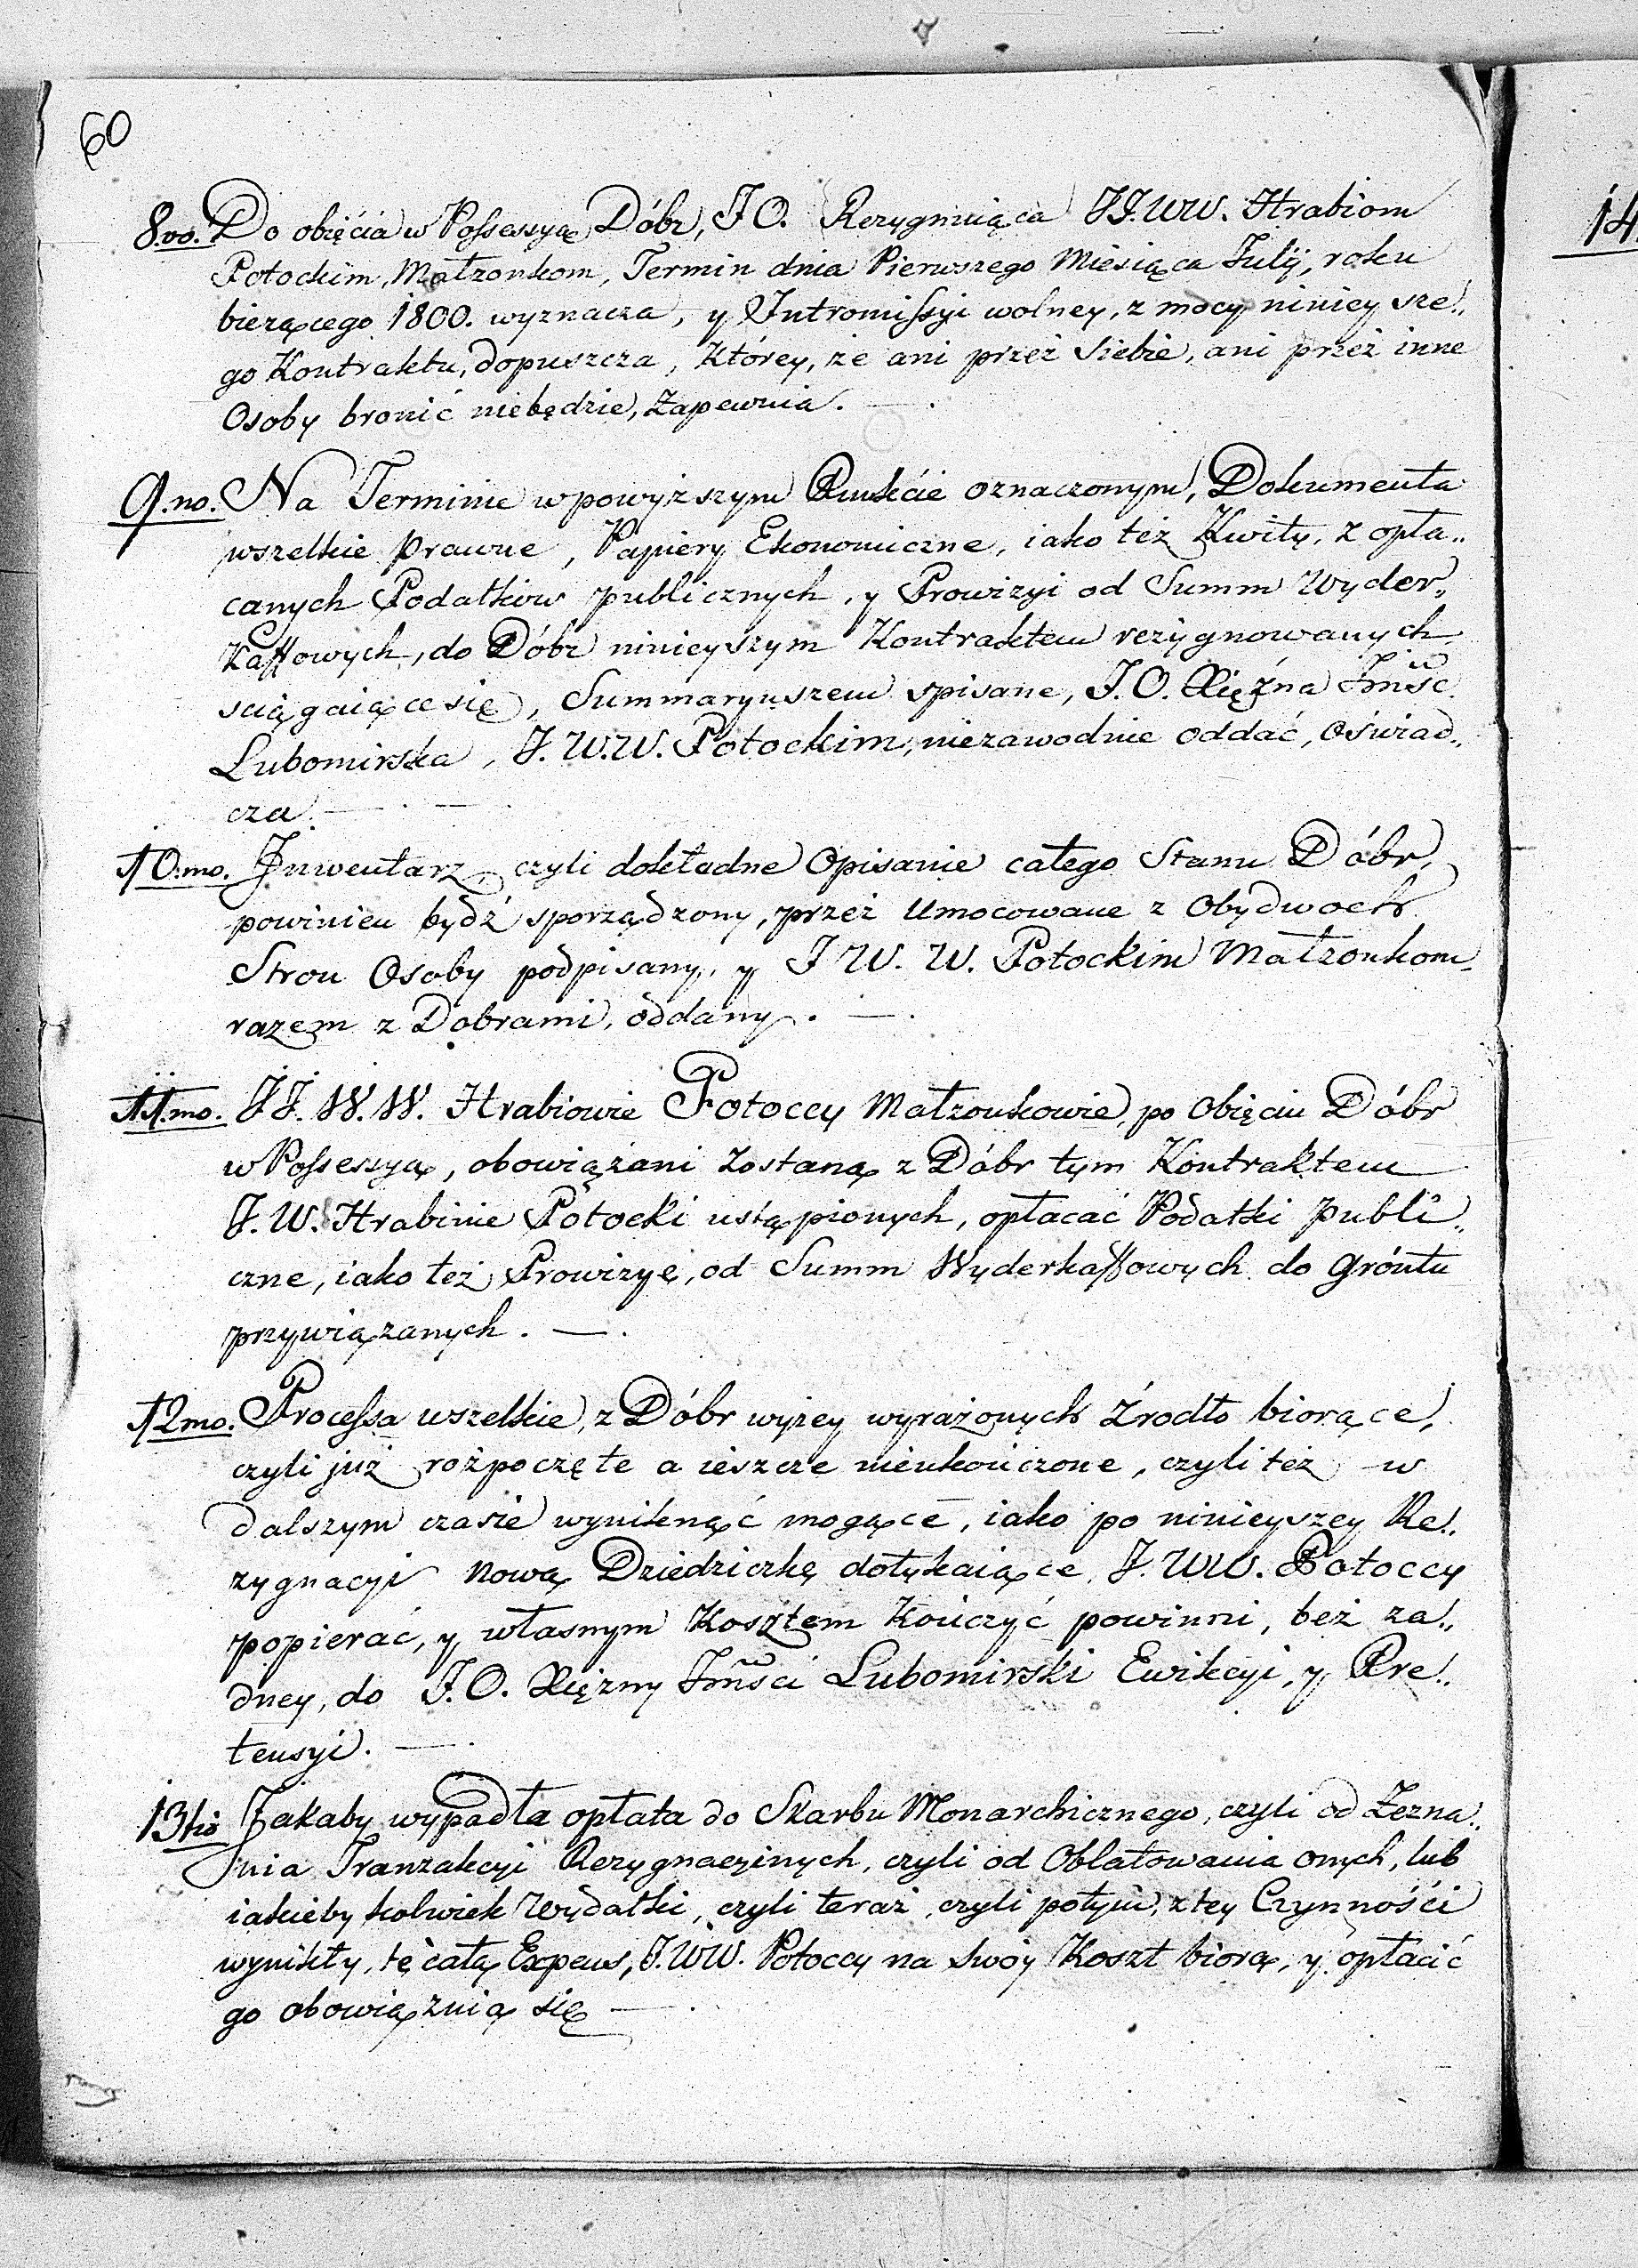 60
8.vo. Do obięcia w Possessyą Dóbr, J O. Rezygnuiąca JJ.WW. Hrabiom
Potockim, Małżonkom, Termin dnia Pierwszego Miesiąca Julij, roku
bieżącego 1800. wyznacza, y Intromissyi wolney, z mocy ninieysze„
go Kontraktu, dopuszcza, Którey, że ani przez Siebie, ani przez inne
Osoby bronić niebędzie, Zapewnia. —.
9.no. Na Terminie w powyższym Punkcie oznaczonym, Dokumenta
wszelkie prawne, Papiery Ekonomiczne, iako też Kwity, z opła„
canych Podatków publicznych, y Prowizyi od Summ Wyder„
Kaffowych, do Dóbr ninieyszym Kontraktem rezygnowanych
sciągaiące się, Summaryuszem spisane, J.O. Xiężna Jmść
Lubomirska, J.W.W. Potockim, niezawodnie oddać, Oświad„
cza. — . — .
10.mo. Jnwentarz, czyli dokładne Opisanie całego Stanu Dóbr,
powinien bydź sporządzony, przez Umocowane z Obydwoch
Stron Osoby podpisany, y J W. W. Potockim Małżonkom
razem z Dobrami, oddany. —.
11.mo. JJ. W.W. Hrabiowie Potoccy Małżonkowie, po Obięciu Dóbr
w Possessyą, obowiązani Zostaną z Dóbr tym Kontraktem
J.W. Hrabinie Potocki ustąpionych, opłacać Podatki publi„
czne, iako też Prowizyę, od Summ Wyderkaffowych do Gróntu
przywiązanych. —.
12mo. Processa wszelkie, z Dóbr wyżey wyrażonych Źrodło biorące,
czyli już rozpoczęte a ieszcze nieukończone, czyli też w
dalszym czasie wyniknąć mogące, iako po ninieyszey Re„
zygnacyi Nową Dziedziczkę dotykaiące, J. WW. Potoccy
popierać, y własnym Kosztem Kończyć powinni, bez ża„
dney, do J.O. Xiężny Jmści Lubomirski Ewikcyi, y Pre„
tensyi. —.
13tio Jakaby wypadła opłata do Skarbu Monarchicznego, czyli od Zezna„
nia Tranzakcyi Rezygnacyinych, czyli od Oblatowania onych, lub
iakieby kolwiek Wydatki, czyli teraz, czyli potym, z tey Czynności
wynikły, tę całą Expens, J.WW. Potoccy na swóy Koszt biorą, y opłacić
go obowiązuią się —.
14.